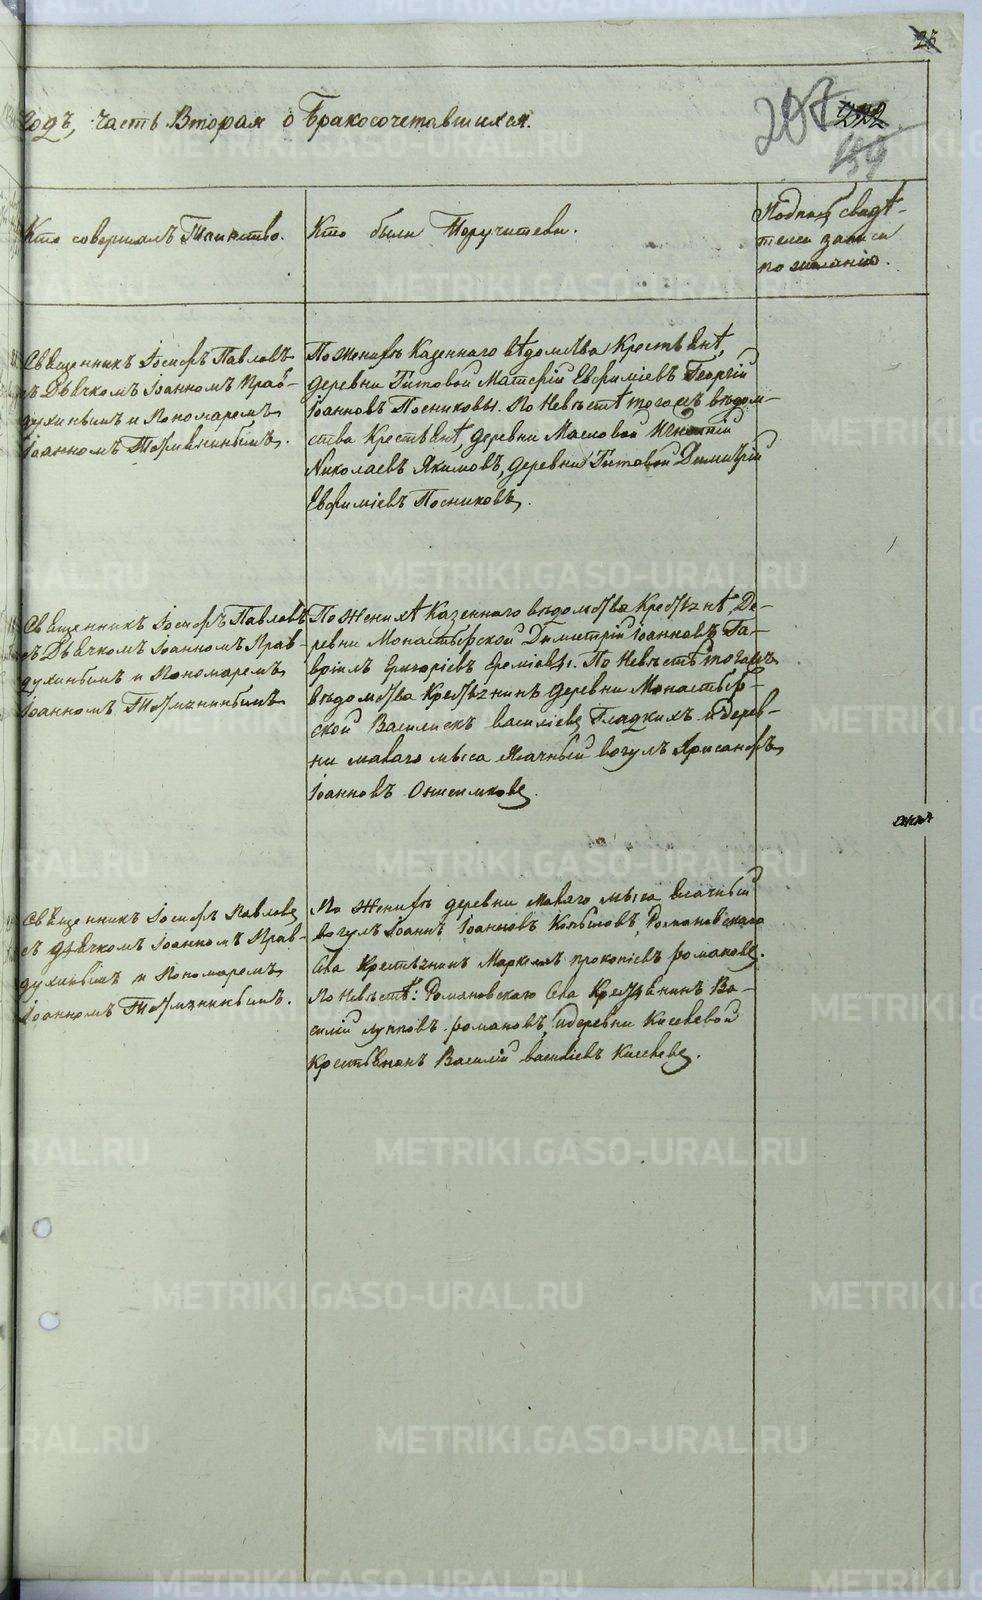 годъ, часть Вторая о Бракосочетавшихся.
207
222
159
23
Кто совершалъ Таинство.
Кто были Поручители.
Подпись свидѣ-
телей записи
по желанію.
Священникъ Іосифъ Павловъ
съ Дьячкомъ Іоанномъ Прав-
духинымъ и Пономаремъ
Іоанномъ Топорнинымъ.
По Женихѣ Казеннаго вѣдомства Крестьянѣ,
деревни Титовой Матфій Евфиміевъ Георгій
Іоанновъ Посниковы. По Невѣстѣ тогожъ вѣдом-
ства Крестьянѣ, деревни Масловой Игнатій
Николаевъ Якимовъ, деревни Титовой Димитрій
Евфиміевъ Посниковъ.
Священникъ Іосифъ Павловъ
съ Дьячкомъ Іоанномъ Прав-
духинымъ и Пономаремъ
Іоанномъ
По Женихѣ Казеннаго вѣдомства Крестьянѣ, Де-
ревни Монастырской Димитрій Іоанновъ Га-
вріилъ Григоріевъ Ереміевы. По Невѣстѣ тогожъ
вѣдомства Крестьянинъ деревни Монастыр-
ской Василискъ Василіевъ Гладкихъ и дерев-
ни малаго мыса Ясачный вогулъ Хрисанфъ
Іоанновъ Онисимковъ.
Священникъ Іосифъ Павловъ
съ дьячкомъ Іоанномъ Прав-
духинымъ и Пономаремъ
Іоанномъ
По Женихѣ деревни малаго мыса Ясачный
вогулъ Іоаннъ Іоанновъ Копыловъ, Романовскаго
Села Крестьянинъ Маркеллъ Прокопіевъ Романовъ.
По Невѣстѣ: Романовскаго Села Крестьянинъ Ва-
силій Лупповъ Романовъ, и деревни Киселевой
Крестьянинъ Василій Василіевъ Киселевъ.
METRIKI.GASO-URAL.RU